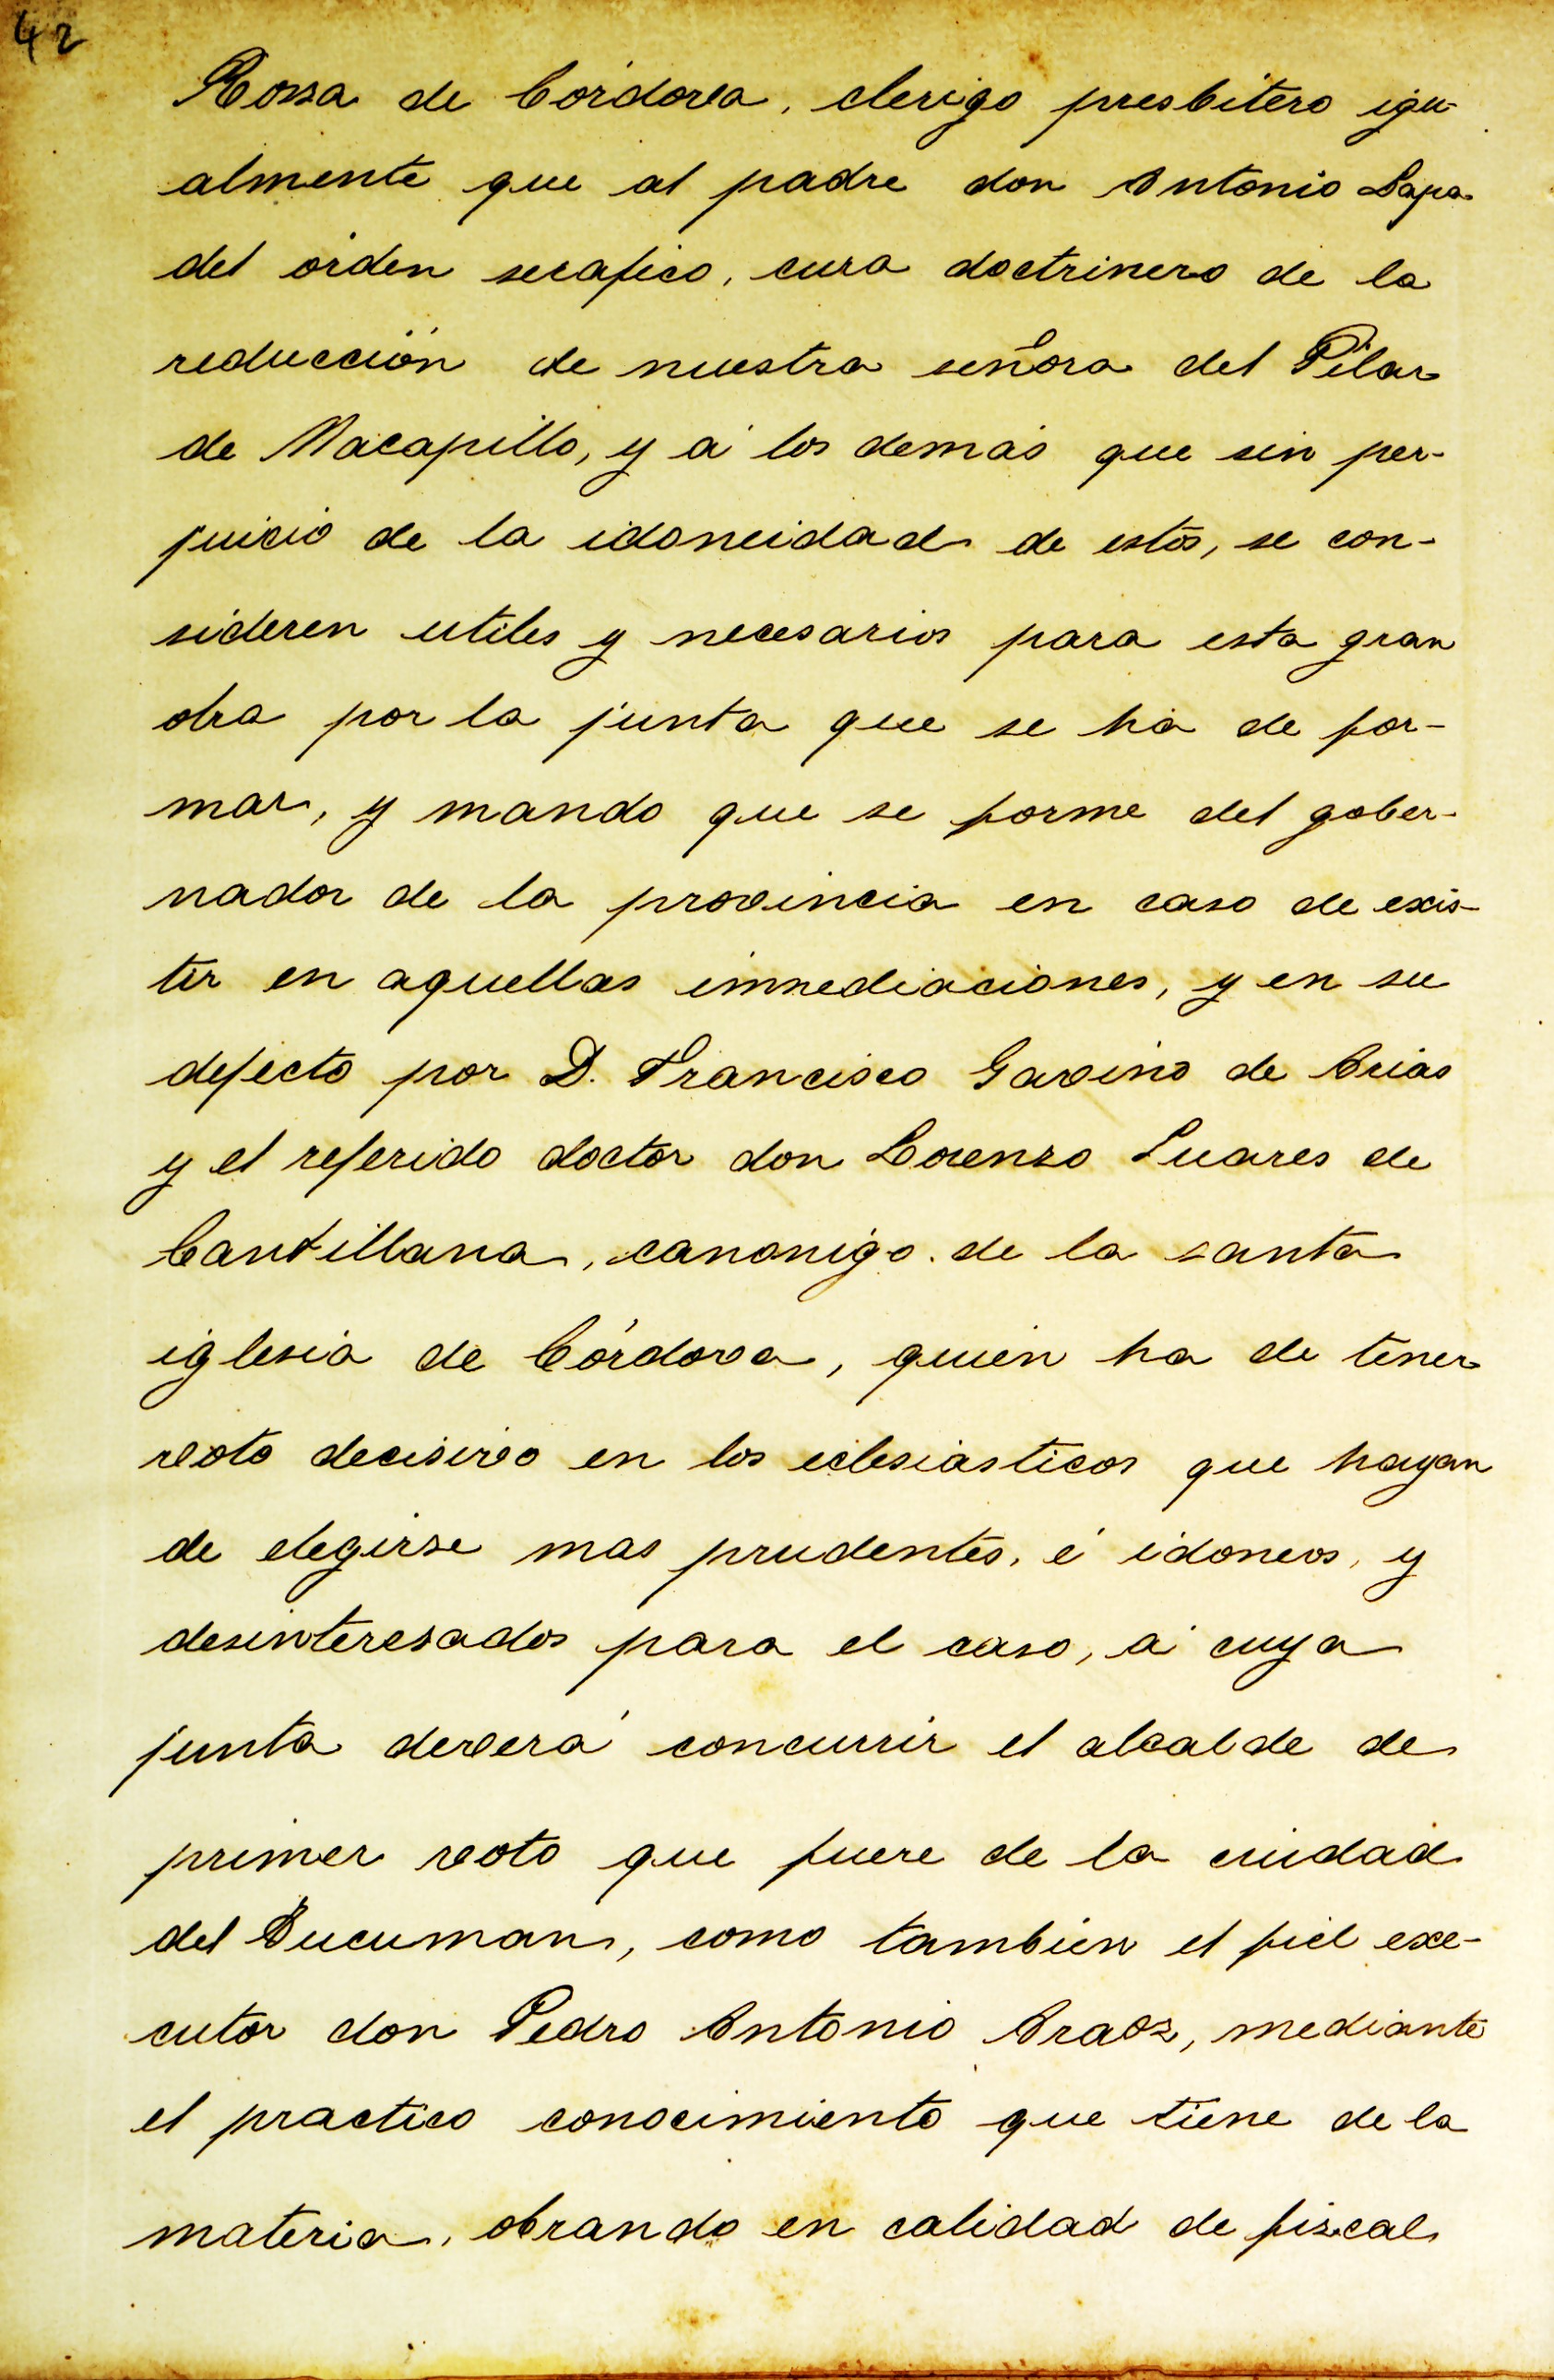 42
Rossa de Córdova, clerigo presbitero igu-
almente que al padre don Antonio Lapa
del orden serafico, cura doctrinero de la
reducción de nuestra señora del Pilar
de Macapillo, y á los demás que sin per-
juicio de la idoneidad de estos, se con-
sideren utiles y necesarios para esta gran
obra por la junta que se ha de for-
mar, y mando que se forme del gober-
nador de la provincia en caso de exis-
tir en aquellas inmediaciones, y en su
defecto por D. Francisco Gavino de Arias
y el referido doctor don Lorenzo Suares de
Cantillana, canonigo de la santa
iglesia de Córdova, quien ha de tener
voto decisivo en los eclesiasticos que hayan
de elegirse mas prudentes, é idoneos, y
desinteresados para el caso, á cuya
junta deverá concurrir el alcalde de
primer voto que fuere de la ciudad
del Tucuman, como tambien el fiel exe-
cutor don Pedro Antonio Araoz, mediante
el practico conocimiento que tiene de la
materia, obrando en calidad de fiscal